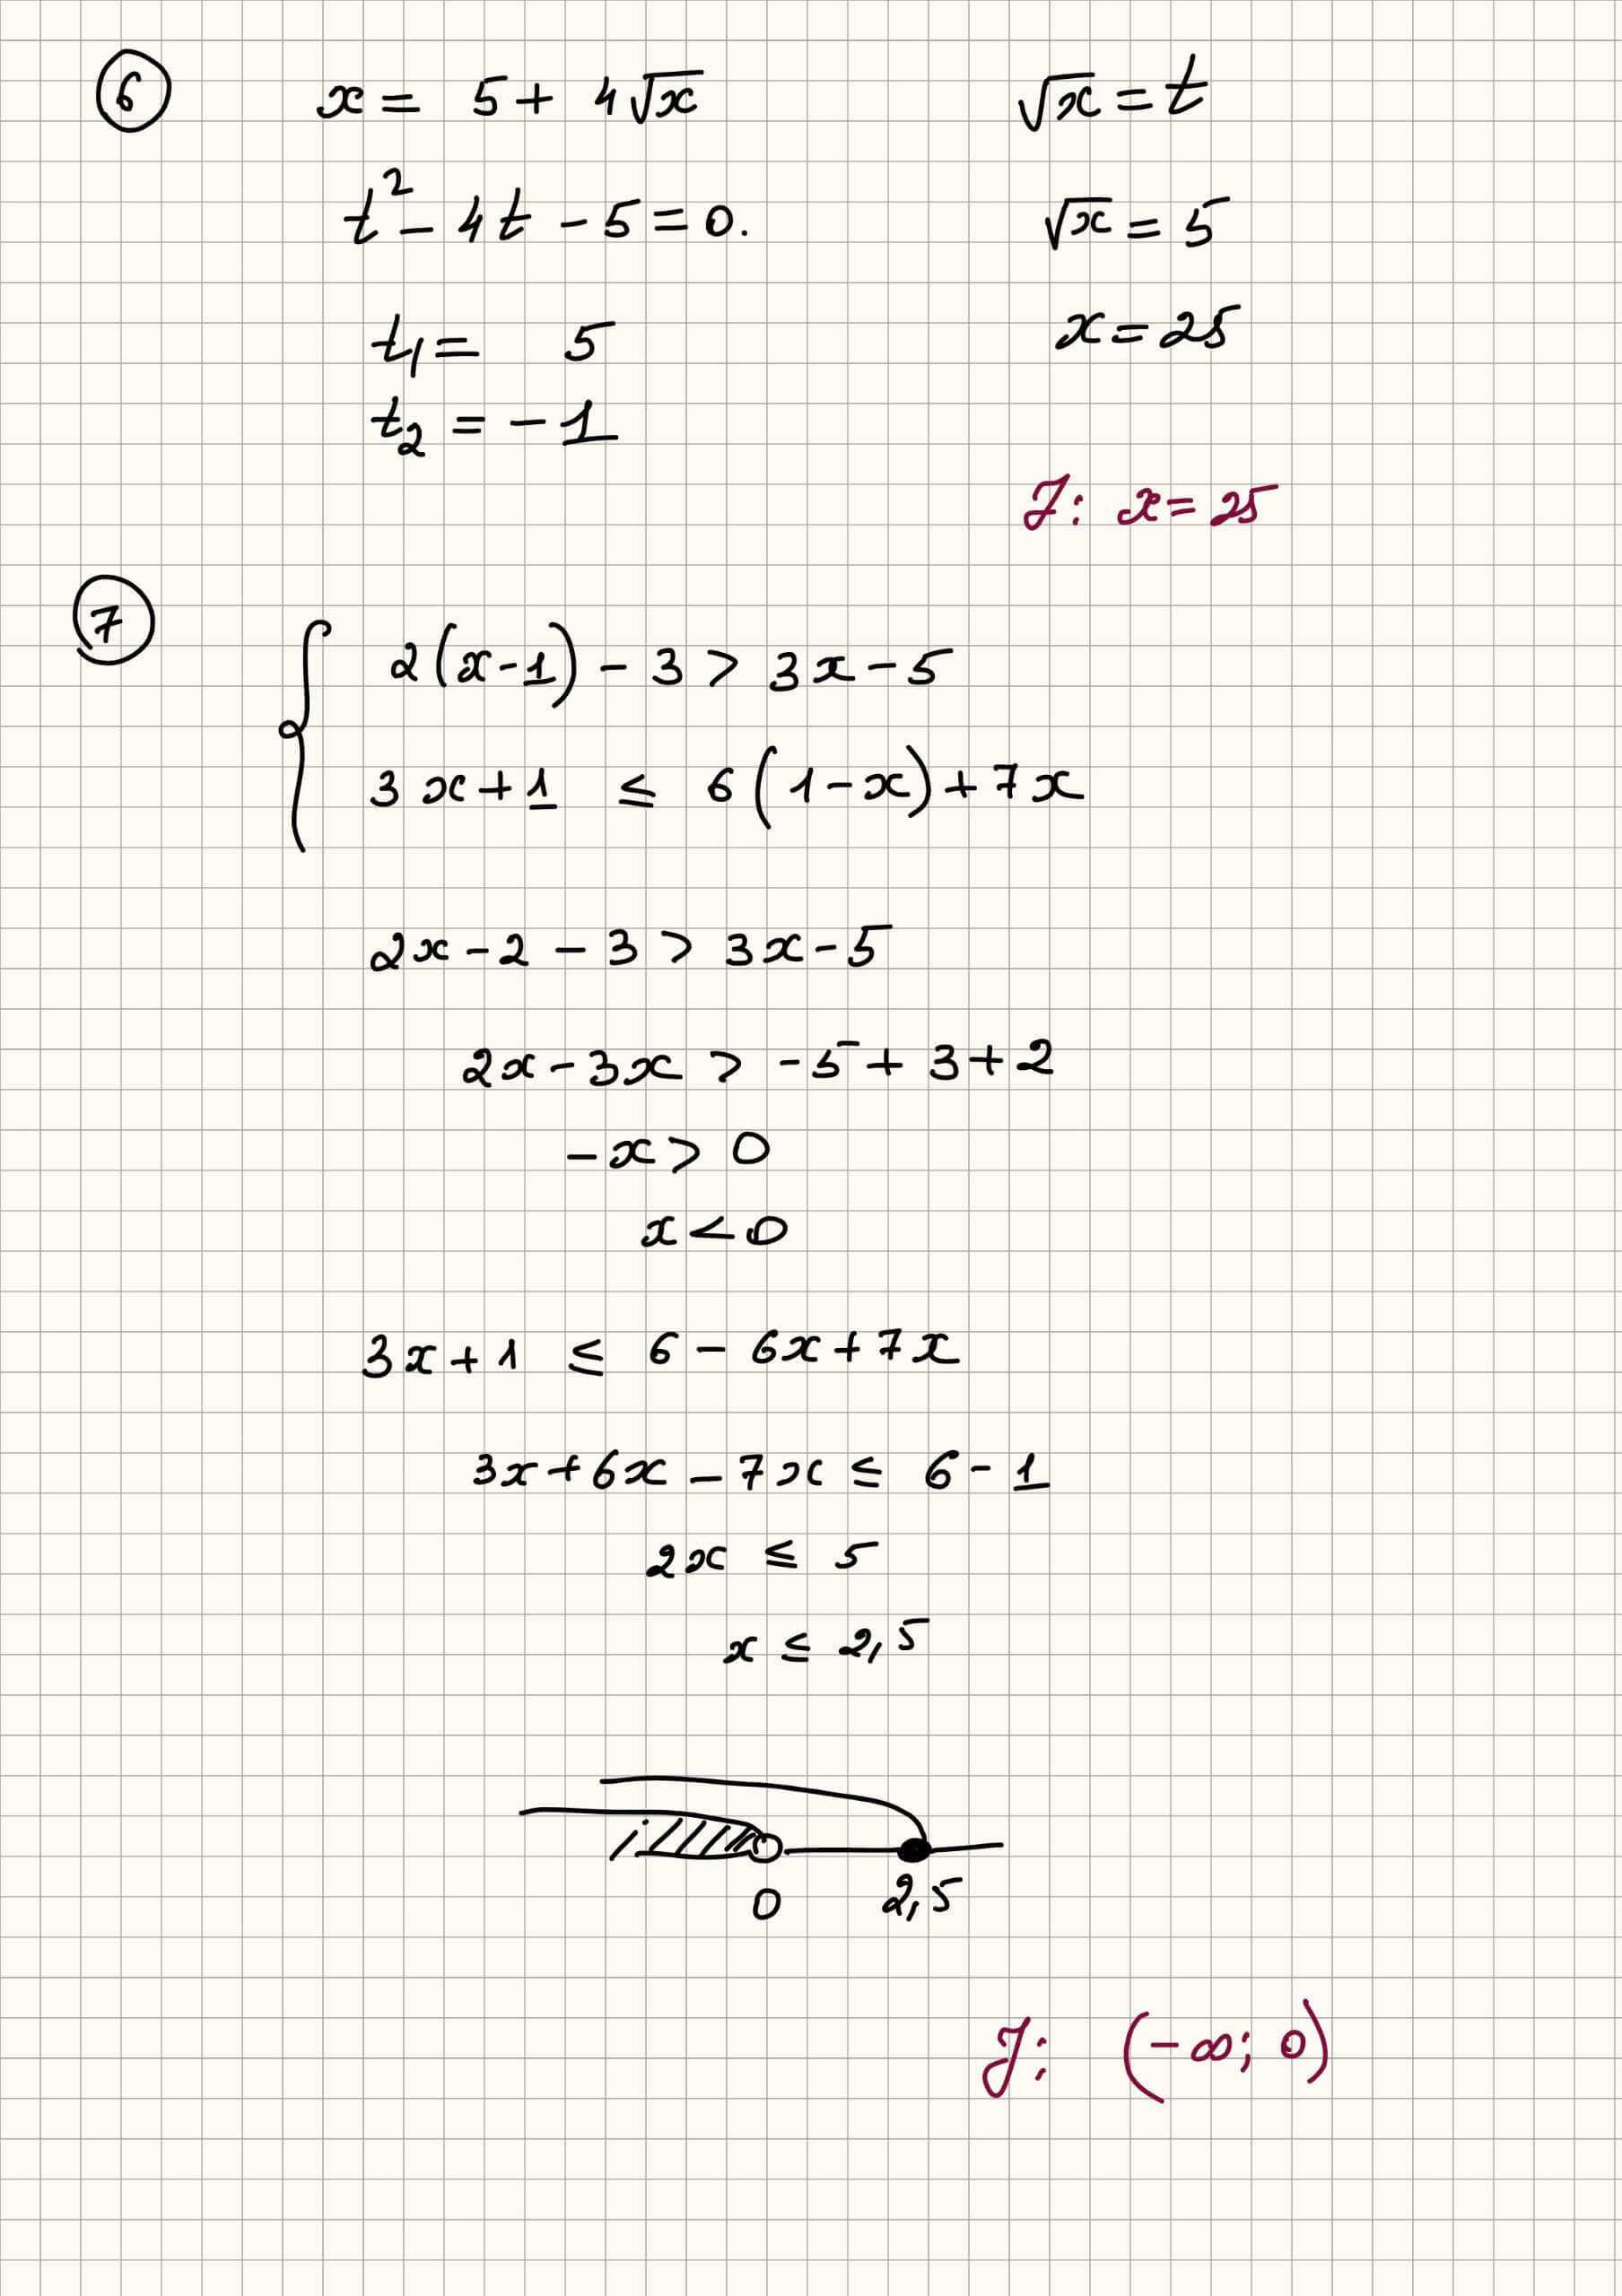 6 x = 5 + 4√x √x = t
t² - 4t - 5 = 0. √x = 5
t₁ = 5 x = 25
t₂ = -1
J: x = 25
7
2(x-1) - 3 > 3x - 5
3x + 1 ≤ 6(1-x) + 7x
2x - 2 - 3 > 3x - 5
2x - 3x > -5 + 3 + 2
-x > 0
x < 0
3x + 1 ≤ 6 - 6x + 7x
3x + 6x - 7x ≤ 6 - 1
2x ≤ 5
x ≤ 2,5
0 2,5
J: (-∞; 0)